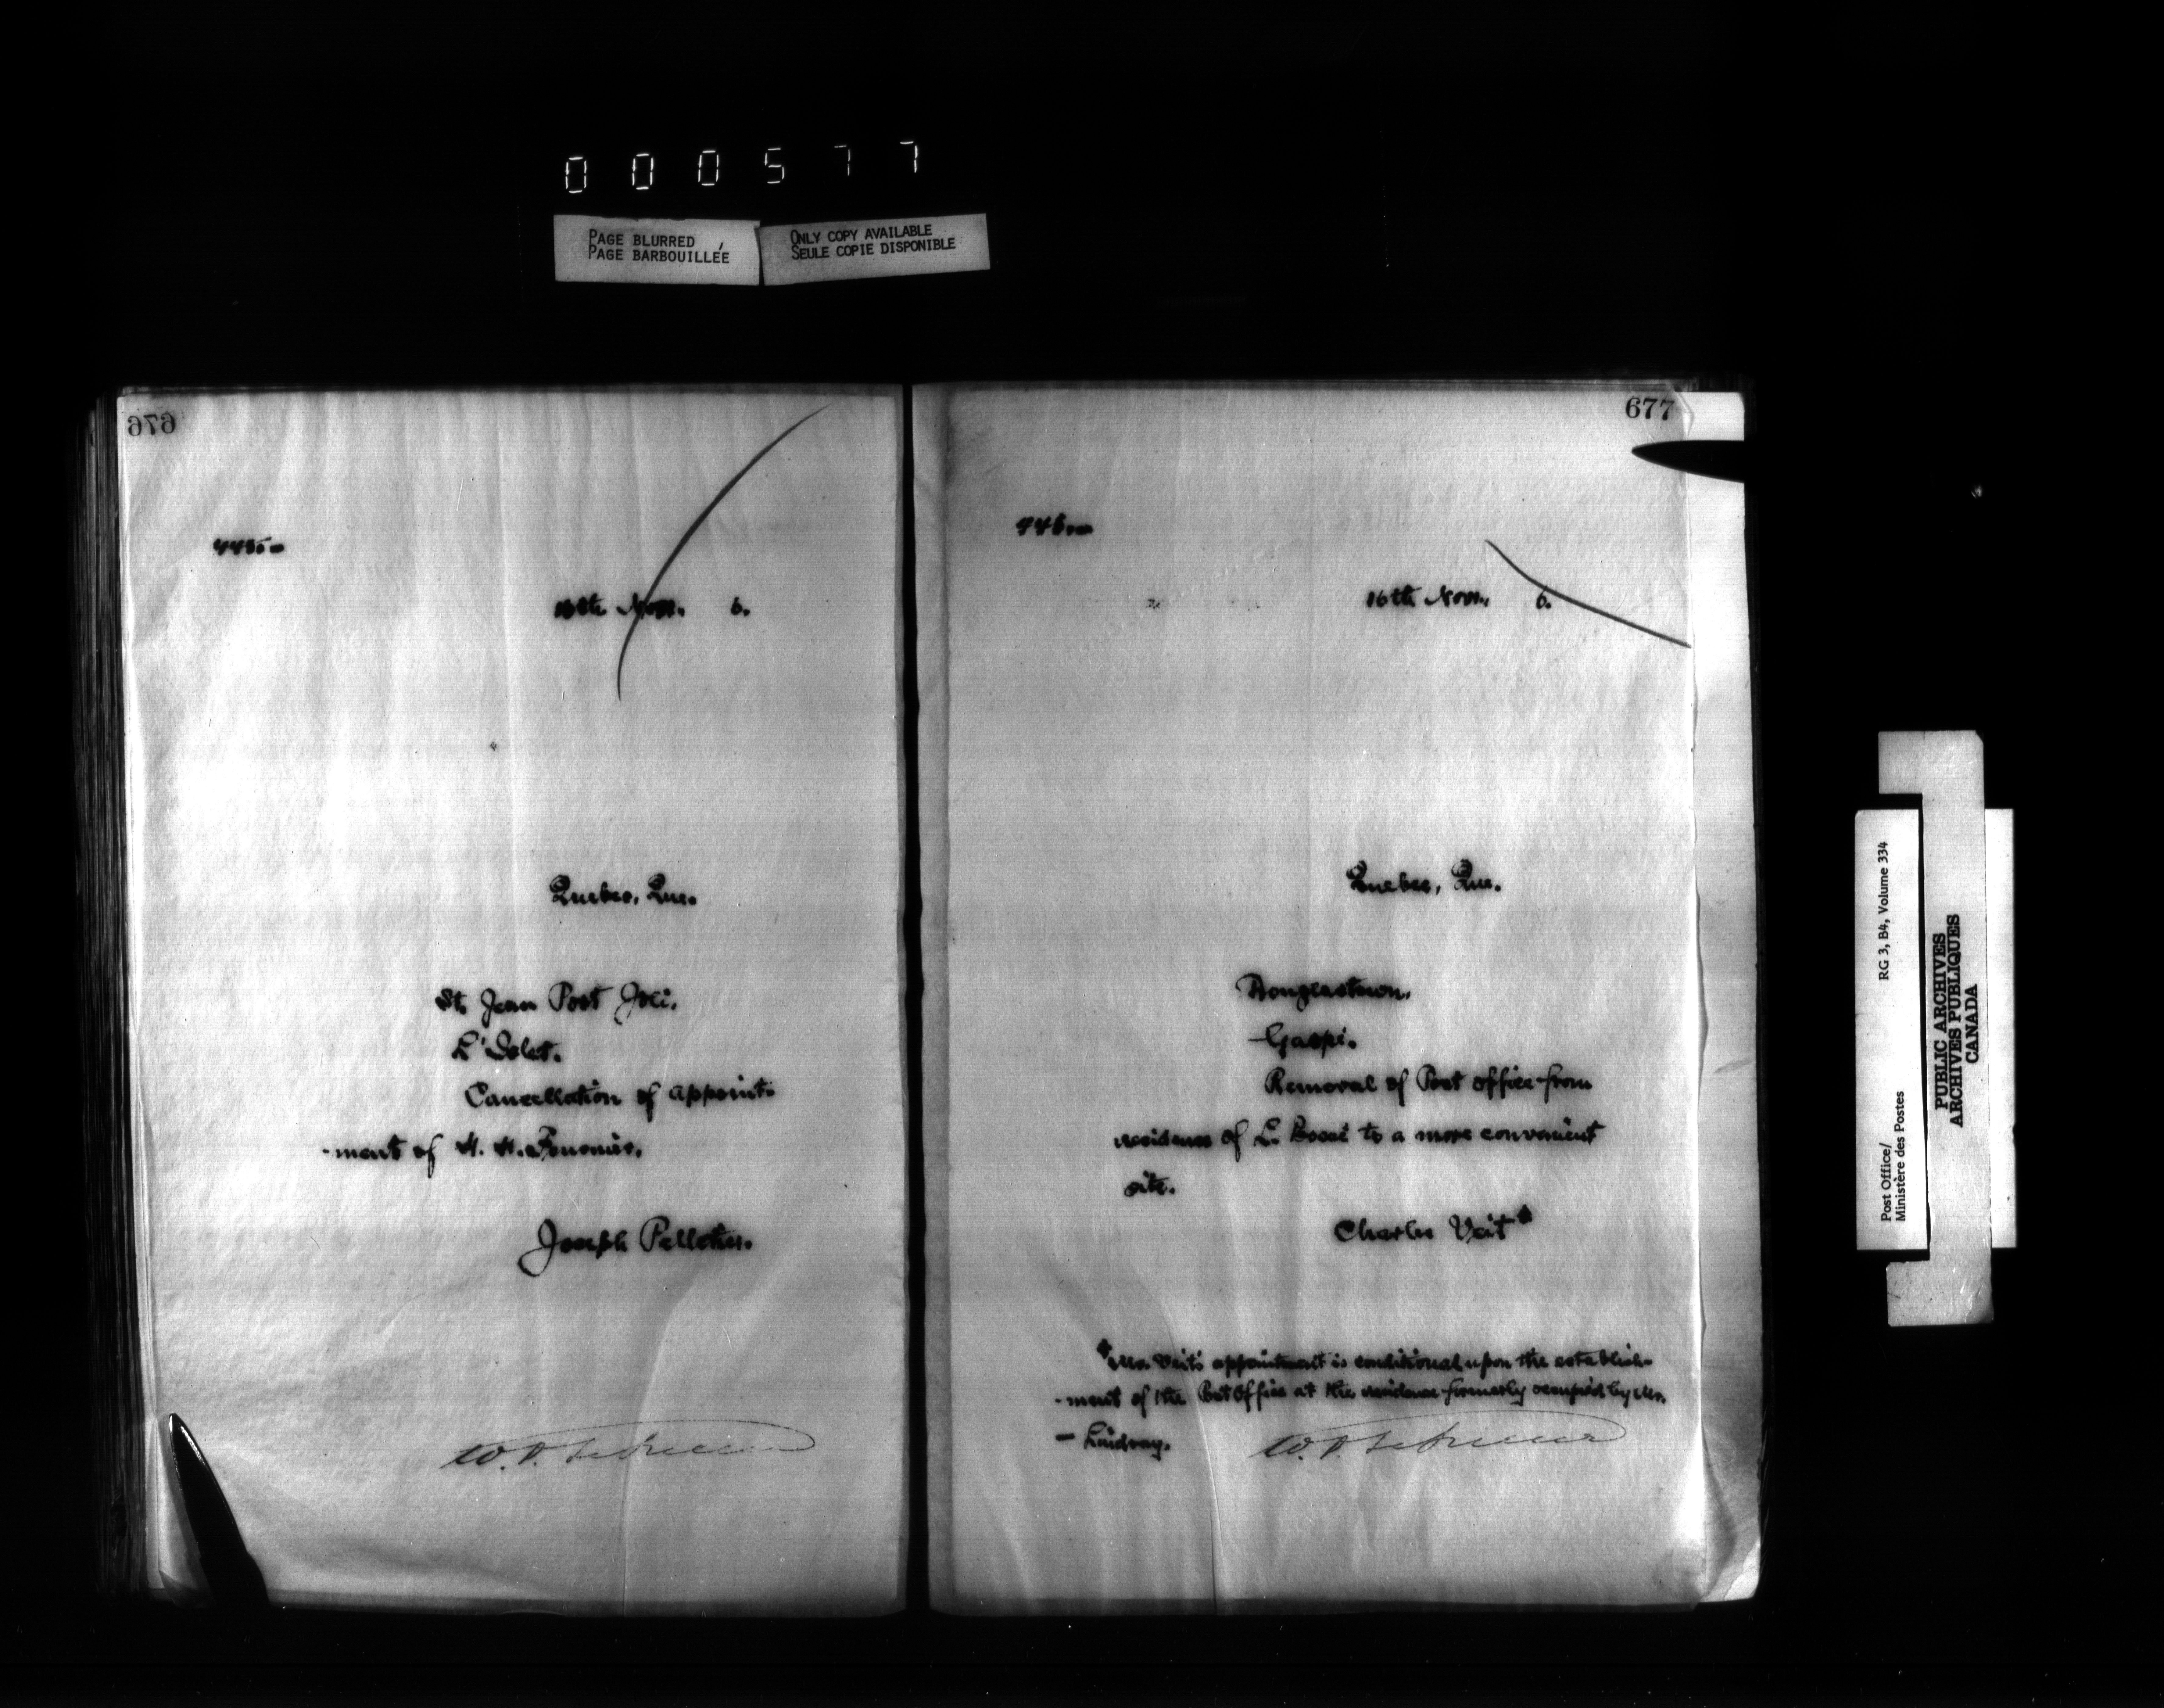 000577
PAGE BLURRED
PAGE BARBOUILLÉE
ONLY COPY AVAILABLE
SEULE COPIE DISPONIBLE
676
445
16th Nov. 6.
Quebec, Que.
St. Jean Port Joli.
L'Islet.
Cancellation of appoint-
-ment of
Joseph Pelletier.
677
446
16th Nov. 6.
Quebec, Que.
Douglastown.
Gaspé.
Removal of Post office from
residence of L. Bossé to a more convenient
site.
Charles Veit*
*Mr. Veit's appointment is conditional upon the establish-
-ment of the Post Office at the residence formerly occupied by Mr.
- Lindsay.
Post Office/ RG 3, B4, Volume 334
Ministère des Postes
PUBLIC ARCHIVES
ARCHIVES PUBLIQUES
CANADA